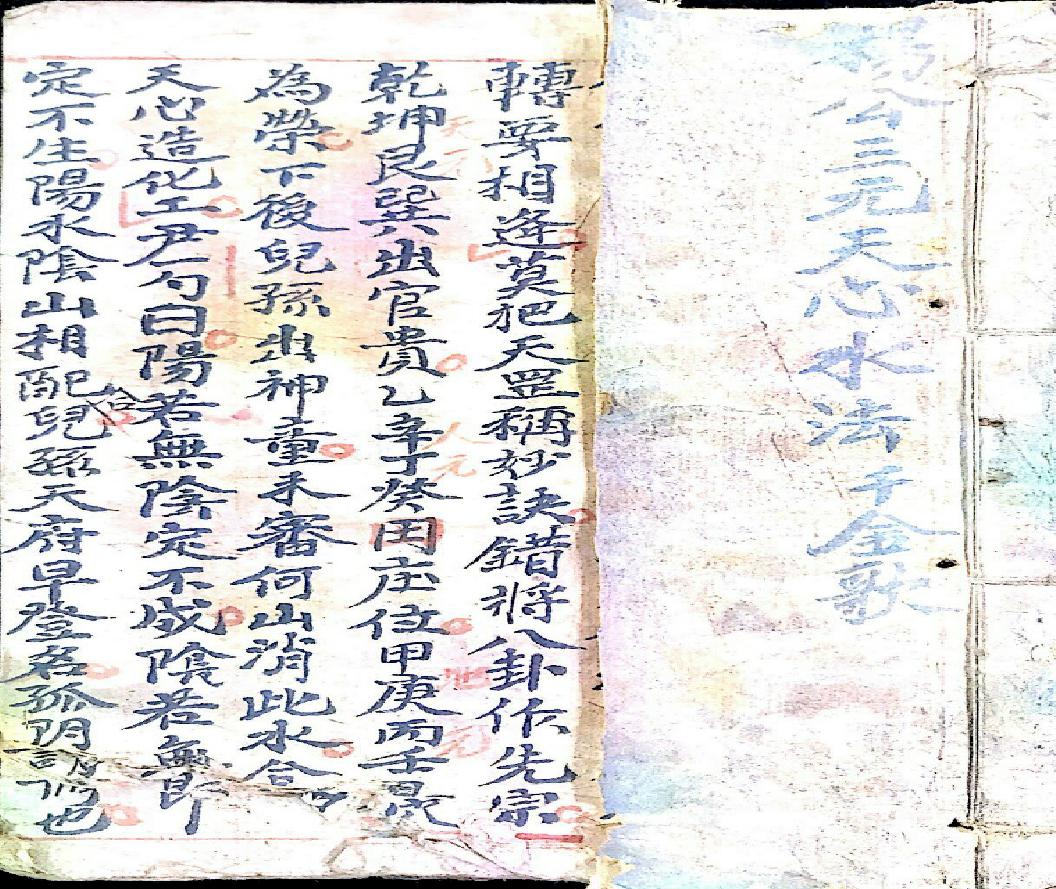 楊公三元天心水法千金歌
轉要相逢莫犯天罡稱妙訣錯將八卦作先宗
乾坤艮巽出官貴乙辛丁癸田庄位甲庚丙壬最
天元
人元
地元
為榮下後兒孫出神童未審何山消此水合
天心造化工尹勾曰陽若無陰定不成陰若無陽
定不生陽水陰山相配合兒孫天府早登名孤陰
也